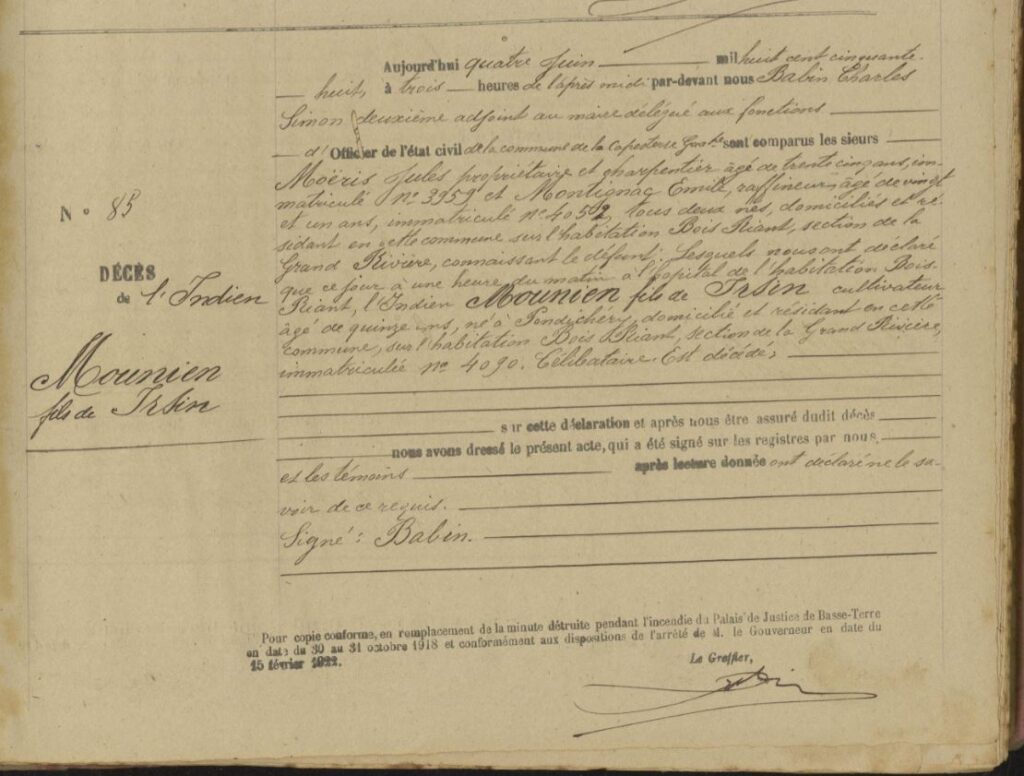 Aujourd'hui quatre Juin mil huit cent cinquante
huit, à trois heures de l'après midi par-devant nous Babin Charles
Simon deuxième adjoint au maire délégué aux fonctions
d'Officier de l'état civil de la commune de la Capesterre sont comparus les sieurs
Moëris Jules propriétaire et charpentier âgé de trente cinq ans, im-
matriculé n° 3959 et Montignac Emile, raffineur âgé de vingt
et un ans, immatriculé n° 4052, tous deux nés, domiciliés et ré-
sidant en cette commune sur l'habitation Bois Riant, section de la
Grand Rivière, connaissant le défunt; Lesquels nous ont déclaré
que ce jour à une heure du matin à l'hôpital de l'habitation Bois
Riant, l'Indien Mounien fils de Irsin cultivateur
âgé de quinze ans, né à Pondichéry, domicilié et résidant en cette
commune, sur l'habitation Bois Riant, section de la Grand Rivière,
immatriculée n° 4090. Célibataire. Est décédé;
N° 85
DÉCÈS
de l'Indien
Mounien
fils de Irsin
sur cette déclaration et après nous être assuré dudit décès
nous avons dressé le présent acte, qui a été signé sur les registres par nous,
et les témoins après lecture donnée ont déclaré ne le sa-
voir de ce requis.
Signé : Babin.
Pour copie conforme, en remplacement de la minute détruite pendant l'incendie du Palais de Justice de Basse-Terre
en date du 30 au 31 octobre 1918 et conformément aux dispositions de l'arrêté de M. le Gouverneur en date du
15 février 1922.
Le Greffier,